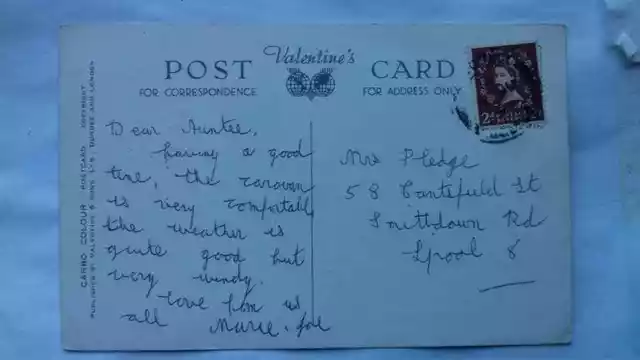 Valentine's
POST CARD
FOR CORRESPONDENCE
FOR ADDRESS ONLY
CARBO COLOUR POSTCARD COPYRIGHT
PUBLISHED BY VALENTINE & SONS LTD. DUNDEE AND LONDON
Dear Auntee,
having a good
time, the caravan
is very comfortable
the weather is
quite good but
very windy.
love from us
all Marie.
Mrs Pledge
58 St
Smithdown Rd
Lpool 8
2D